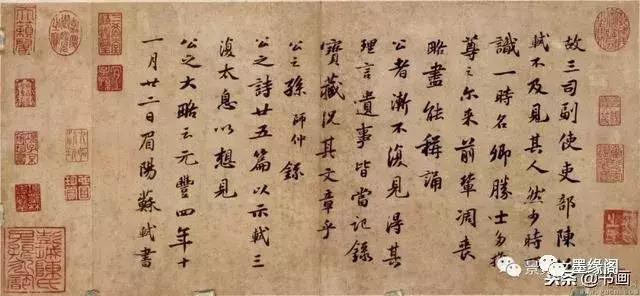 故三司副使吏部陳
軾不及見其人然少時
識一時名卿勝士多推
尊之尔來前輩凋喪
略盡能稱誦
公者漸不復見得其
理言遺事皆當記錄
寶藏況其文章乎
公之孫師仲錄
公之詩廿五篇以示軾三
復太息以想見
公之大略云元豐四年十
一月廿二日眉陽蘇軾書
墨缘阁
头条@书画